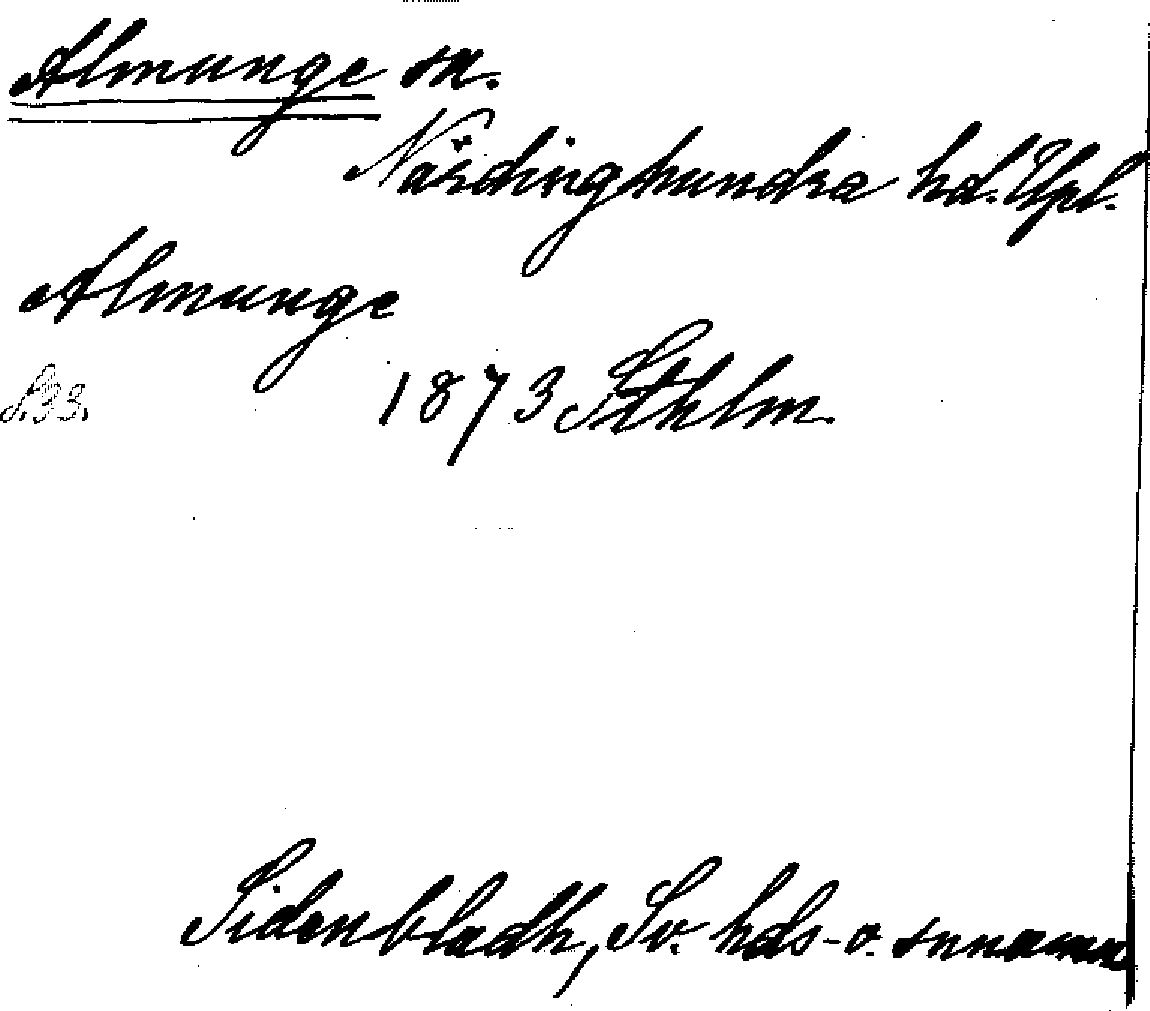 Almunge sn.
Närdinghundra hd. Upl.
Almunge
S. 33. 1873 Sthlm.
Sidenbladh, Sv. hds- o. snnamn